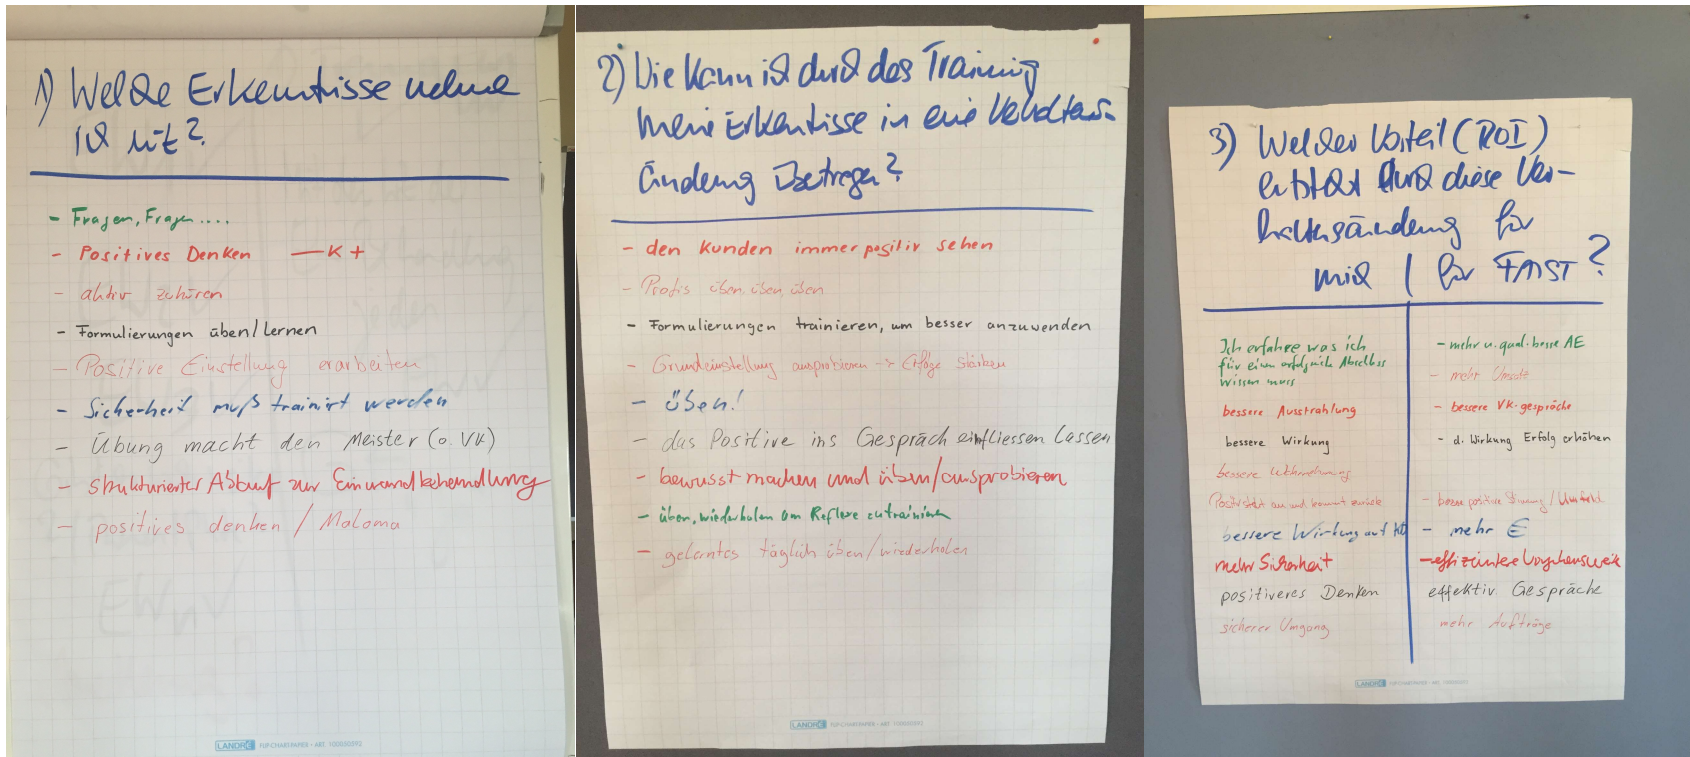 1) Welche Erkentnisse nehme
ich mit?
- Fragen, Fragen....
- Positives Denken — K +
- aktiv zuhören
- Formulierungen üben/Lernen
- Positive Einstellung erarbeiten
- Sicherheit muß trainirt werden
- Übung macht den Meister (o. VK)
- strukturierter Ablauf zur Einwandbehandlung
- positives denken / Maloma
LANDRÉ FLIP-CHARTPAPIER • ART. 100050592
2) Wie kann ich durch das Training
meine Erkentisse in eine Verhaltens-
änderung übertragen?
- den Kunden immer positiv sehen
- Profis üben, üben, üben
- Formulierungen trainieren, um besser anzuwenden
- Grundeinstellung ausprobieren -> Erfolge stärken
- üben!
- das Positive ins Gespräch einfliessen lassen
- bewusst machen und üben/ausprobieren
- üben, wiederholen um Reflexe zu trainieren
- gelerntes täglich üben/wiederholen
LANDRÉ FLIP-CHARTPAPIER • ART. 100050592
3) Welcher Vorteil (ROI)
entsteht durch diese Ver-
haltensänderung für
mich | für FAIST?
Ich erfahre was ich
für einen erfolgreichen Abschluss
wissen muss
bessere Ausstrahlung
bessere Wirkung
bessere Wahrnehmung
Positiv strahlt aus und kommt zurück
bessere Wirkung auf KD
mehr Sicherheit
positiveres Denken
sicherer Umgang
- mehr u. qual. bessere AE
- mehr Umsatz
- bessere VK-gespräche
- d. Wirkung Erfolg erhöhen
- bessere positive Stimmung / Umfeld
- mehr €
- effizientere Vorgehensweise
effektiv Gespräche
mehr Aufträge
LANDRÉ